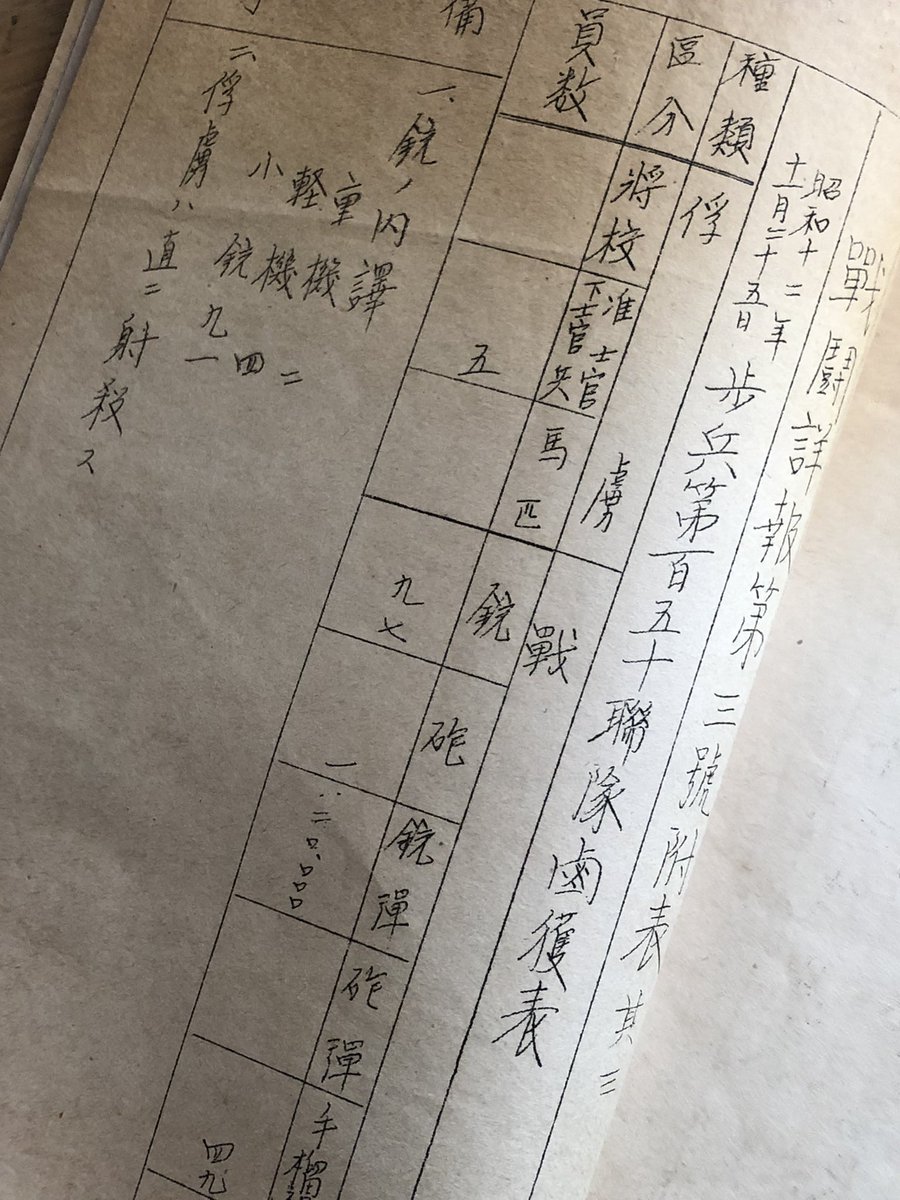 戰鬪詳報第三號附表其三
昭和十二年
十一月二十五日
步兵第百五十聯隊鹵獲表
種類
俘虜
戰
區分
將校
准士官
下士官兵
馬匹
銃
砲
銃彈
砲彈
手榴
員数
五
九七
一.二〇.〇〇〇
四九
備
一、銃ノ內譯
重機 二
軽機 四
小銃 九一
二、俘虜ハ直ニ射殺ス